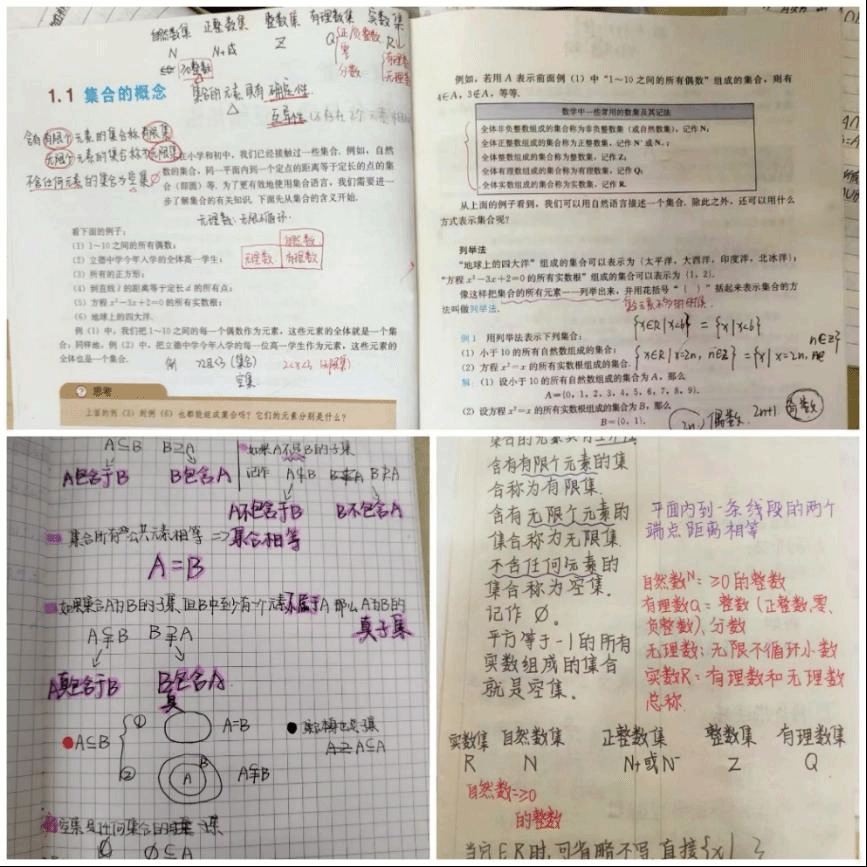 自然数集 正整数集 整数集 有理数集 实数集
N N+或 Z Q R
正负整数
零
分数
有理数
无理数
非负整数
1.1 集合的概念
集合的元素具有确定性
互异性
含有有限个元素的集合称有限集
无限个元素的集合称为无限集
不含任何元素的集合为空集∅
在小学和初中，我们已经接触过一些集合。例如，自然
数的集合，同一平面内到一个定点的距离等于定长的点的集
合（即圆）等. 为了更有效地使用集合语言，我们需要进一
步了解集合的有关知识. 下面先从集合的含义开始.
无理数：无限不循环.
看下面的例子：
(1) 1~10之间的所有偶数；
(2) 立德中学今年入学的全体高一学生；
(3) 所有的正方形；
(4) 到直线l的距离等于定长d的所有点；
(5) 方程x²-3x+2=0的所有实数根；
(6) 地球上的四大洋.
自然数
无理数 有理数
例（1）中，我们把1~10之间的每一个偶数作为元素，这些元素的全体就是一个集
合；同样地，例（2）中，把立德中学今年入学的每一位高一学生作为元素，这些元素的
全体也是一个集合.
例 (集合) 2<x<3 (无限集)
空集
思考
上面的例（3）到例（6）也都能组成集合吗？它们的元素分别是什么？
例如，若用A表示前面例（1）中“1~10之间的所有偶数”组成的集合，则有
4∈A，3∉A，等等.
数学中一些常用的数集及其记法
全体非负整数组成的集合称为非负整数集（或自然数集），记作N；
全体正整数组成的集合称为正整数集，记作N*或N₊；
全体整数组成的集合称为整数集，记作Z；
全体有理数组成的集合称为有理数集，记作Q；
全体实数组成的集合称为实数集，记作R.
从上面的例子看到，我们可以用自然语言描述一个集合. 除此之外，还可以用什么
方式表示集合呢？
列举法
“地球上的四大洋”组成的集合可以表示为{太平洋，大西洋，印度洋，北冰洋}；
“方程x²-3x+2=0的所有实数根”组成的集合可以表示为{1，2}.
像这样把集合的所有元素一一列举出来，并用花括号“{ }”括起来表示集合的方
法叫做列举法.
{x∈R|x<6} = {x|x<6}
例1 用列举法表示下列集合：
(1) 小于10的所有自然数组成的集合；
(2) 方程x²=x的所有实数根组成的集合.
{x∈R|x=2n, n∈Z} = {x|x=2n, n∈Z}
解：(1) 设小于10的所有自然数组成的集合为A，那么
A={0，1，2，3，4，5，6，7，8，9}.
(2) 设方程x²=x的所有实数根组成的集合为B，那么
B={0，1}.
2n 偶数. 2n+1 奇数
A⊆B B⊇A
A包含于B B包含A
如果A不是B的子集
记作 A⊈B B⊉A
A不包含于B B不包含A
集合所有公共元素相等 => 集合相等
A=B
如果集合A为B的子集,且B中至少有一个元素不属于A 那么A为B的
真子集
A⫋B B⫌A
A真包含于B B真包含A
A⊆B
① A=B
② B A A⫋B
A⊆A
空集是任何集合的子集
∅ ∅⊆A
含有有限个元素的集
合称为有限集.
含有无限个元素的
集合称为无限集.
不含任何元素的
集合称为空集.
记作 ∅。
平方等于-1的所有
实数组成的集合
就是空集。
平面内到一条线段的两个
端点距离相等
自然数N：≥0的整数
有理数Q：整数（正整数,零、
负整数）、分数
无理数：无限不循环小数
实数R：有理数和无理数
总称.
实数集 自然数集 正整数集 整数集 有理数集
R N N+或N* Z Q
自然数=≥0
的整数
当x∈R时,可省略不写.直接{x| }